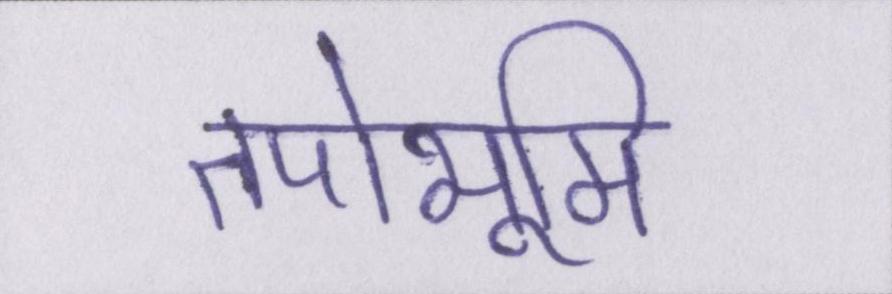 तपोभूमि